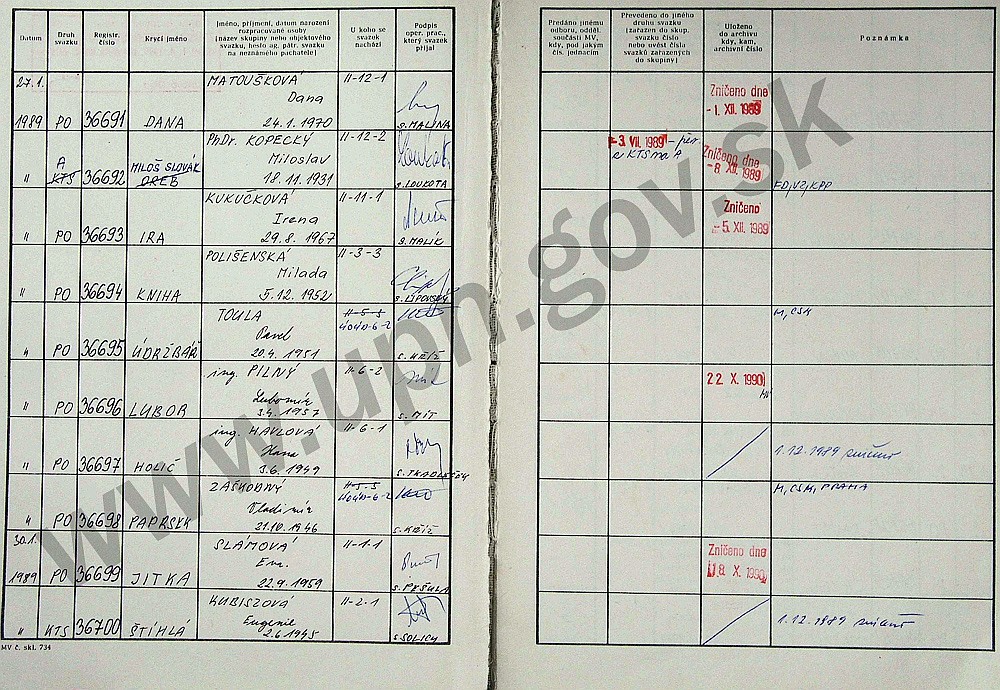 Datum
Druh svazku
Registr. číslo
Krycí jméno
Jméno, příjmení, datum narození
rozpracované osoby
(název skupiny nebo objektového
svazku, heslo ag. pátr. svazku
na neznámého pachatele)
U koho se
svazek
nachází
Podpis
oper. prac.,
který svazek
přijal
Předáno jinému
odboru, odděl.
součásti MV,
kdy, pod jakým
čís. jednacím
Převedeno do jiného
druhu svazku
(zařazen do skup.
svazku číslo
nebo uvést čísla
svazků zařazených
do skupiny)
Uloženo
do archivu
kdy, kam,
archivní číslo
Poznámka
27.1. MATOUŠKOVÁ II-12-1
Dana
1989 PO 36691 DANA 24.1.1970 s. MALINA
Zničeno dne
-1. XII. 1989
A MILOŠ SLOVÁK PhDr. KOPECKÝ II-12-2
Miloslav
" KTS 36692 OREB 18.11.1931 s. LOUKOTA
-3. VII. 1989 - přev.
z KTS na A
Zničeno dne
-8. XII. 1989
KUKUČKOVÁ II-11-1
Irena
" PO 36693 IRA 29.8.1967 s. MALÍK
Zničeno
-5. XII. 1989
POLIŠENSKÁ II-3-3
Milada
" PO 36694 KNIHA 5.12.1952 s. LIPOVSKÝ
TOULA II-5-3
Pavel
" PO 36695 ÚDRŽBÁŘ 20.4.1951
M, CSK
ing. PILNÝ II-6-2
Lubomír
" PO 36696 LUBOR 3.4.1957 s. MÍT
22. X. 1990
ing. HAVLOVÁ II-6-1
Hana
" PO 36697 HOLIČ 3.6.1949 s. TKADLEČEK
1.12.1989 zničent
ZÁŠKODNÝ
Vladimír
" PO 36698 PAPRSKK 21.10.1946 s. KŘÍŽ
30.1. SLÁMOVÁ II-1-1
Eva
1989 PO 36699 JITKA 22.9.1959 s. PEŠULA
Zničeno dne
18. X. 1990
KUBISZOVÁ II-2-1
Eugenie
" KTS 36700 ŠTÍHLÁ 2.6.1945 s. SOLICH
1.12.1989 zničent
MV č. skl. 734
www.upn.gov.sk